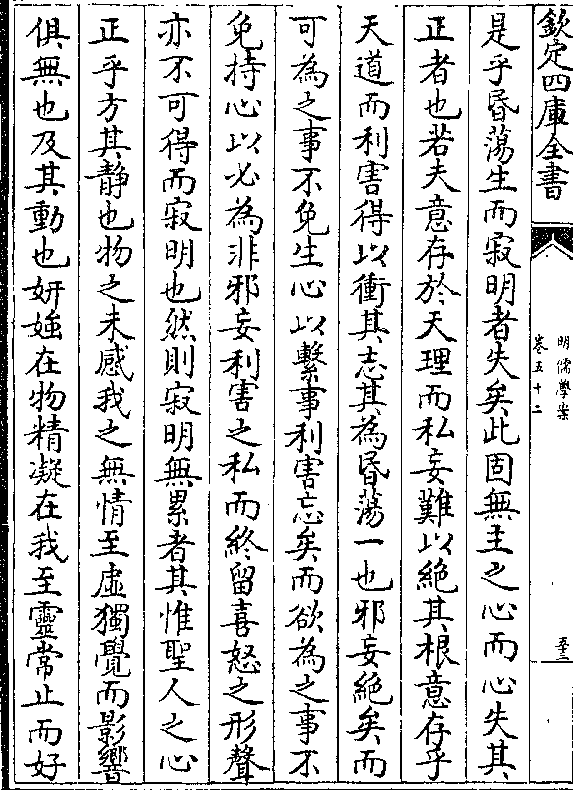 欽定四庫全書
明儒學案
卷五十二
五十二
是乎昏蕩生而寂明者失矣此固無主之心而心失其
正者也若夫意存於天理而私妄難以絶其根意存乎
天道而利害得以衝其志其為昏蕩一也邪妄絶矣而
可為之事不免生心以繫事利害忘矣而欲為之事不
免持心以必為非邪妄利害之私而終留喜怒之形聲
亦不可得而寂明也然則寂明無累者其惟聖人之心
正乎方其靜也物之未感我之無情至虛獨覺而影響
俱無也及其動也妍媸在物精凝在我至靈常止而好